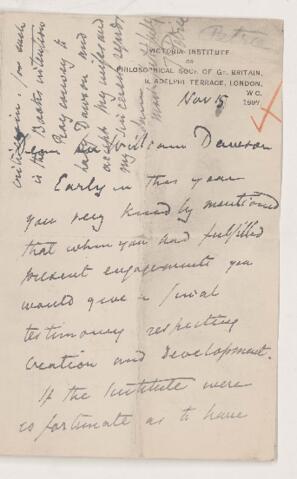 Petrie
VICTORIA INSTITUTE
OR
PHILOSOPHICAL SOCY. OF GT. BRITAIN,
8, ADELPHI TERRACE, LONDON,
W.C.
Nov 5 1897
Dear Sir William Dawson
Early in this year
you very kindly mentioned
that when you had fulfilled
present engagements you
would give a final
testimony respecting
Creation and Development.
If the Institute were
so fortunate as to have
criticism. / or such
is the Book's intention
convey to
Lady Dawson and
accept my wife's and
my sincerest regards